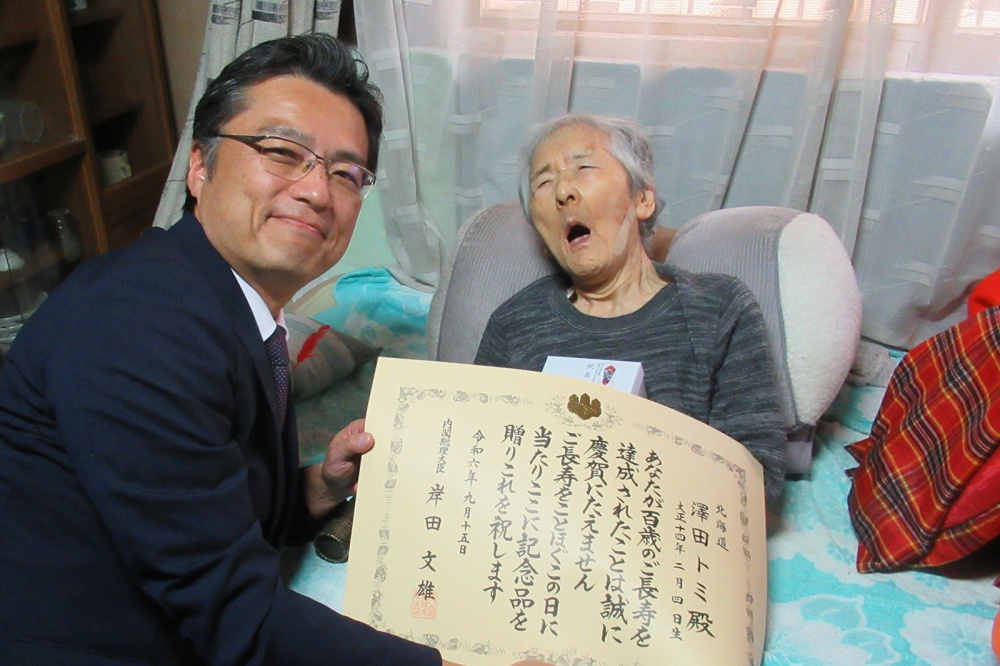 北海道
澤田トミ殿
大正十四年二月四日生
あなたが百歳のご長寿を
達成されたことは誠に
慶賀にたえません
ご長寿をことほぐこの日に
当たりここに記念品を
贈りこれを祝します
令和六年九月十五日
内閣総理大臣 岸田文雄